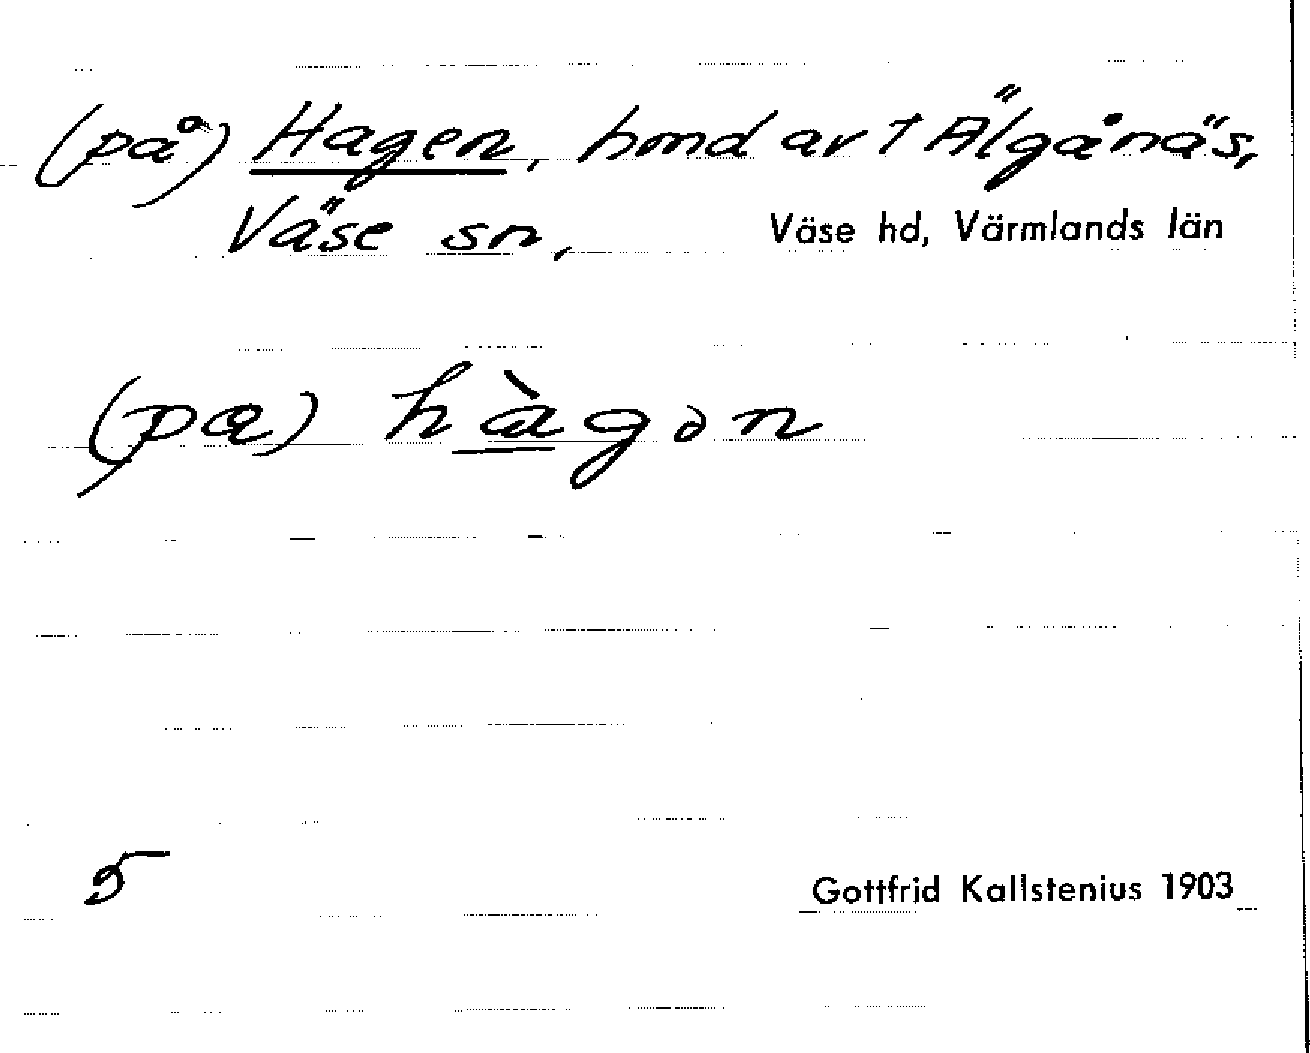 (på) Hagen, hmd av 1 Älgånäs,
Väse sn, Väse hd, Värmlands län
(pa) hàgən
5
Gottfrid Kallstenius 1903